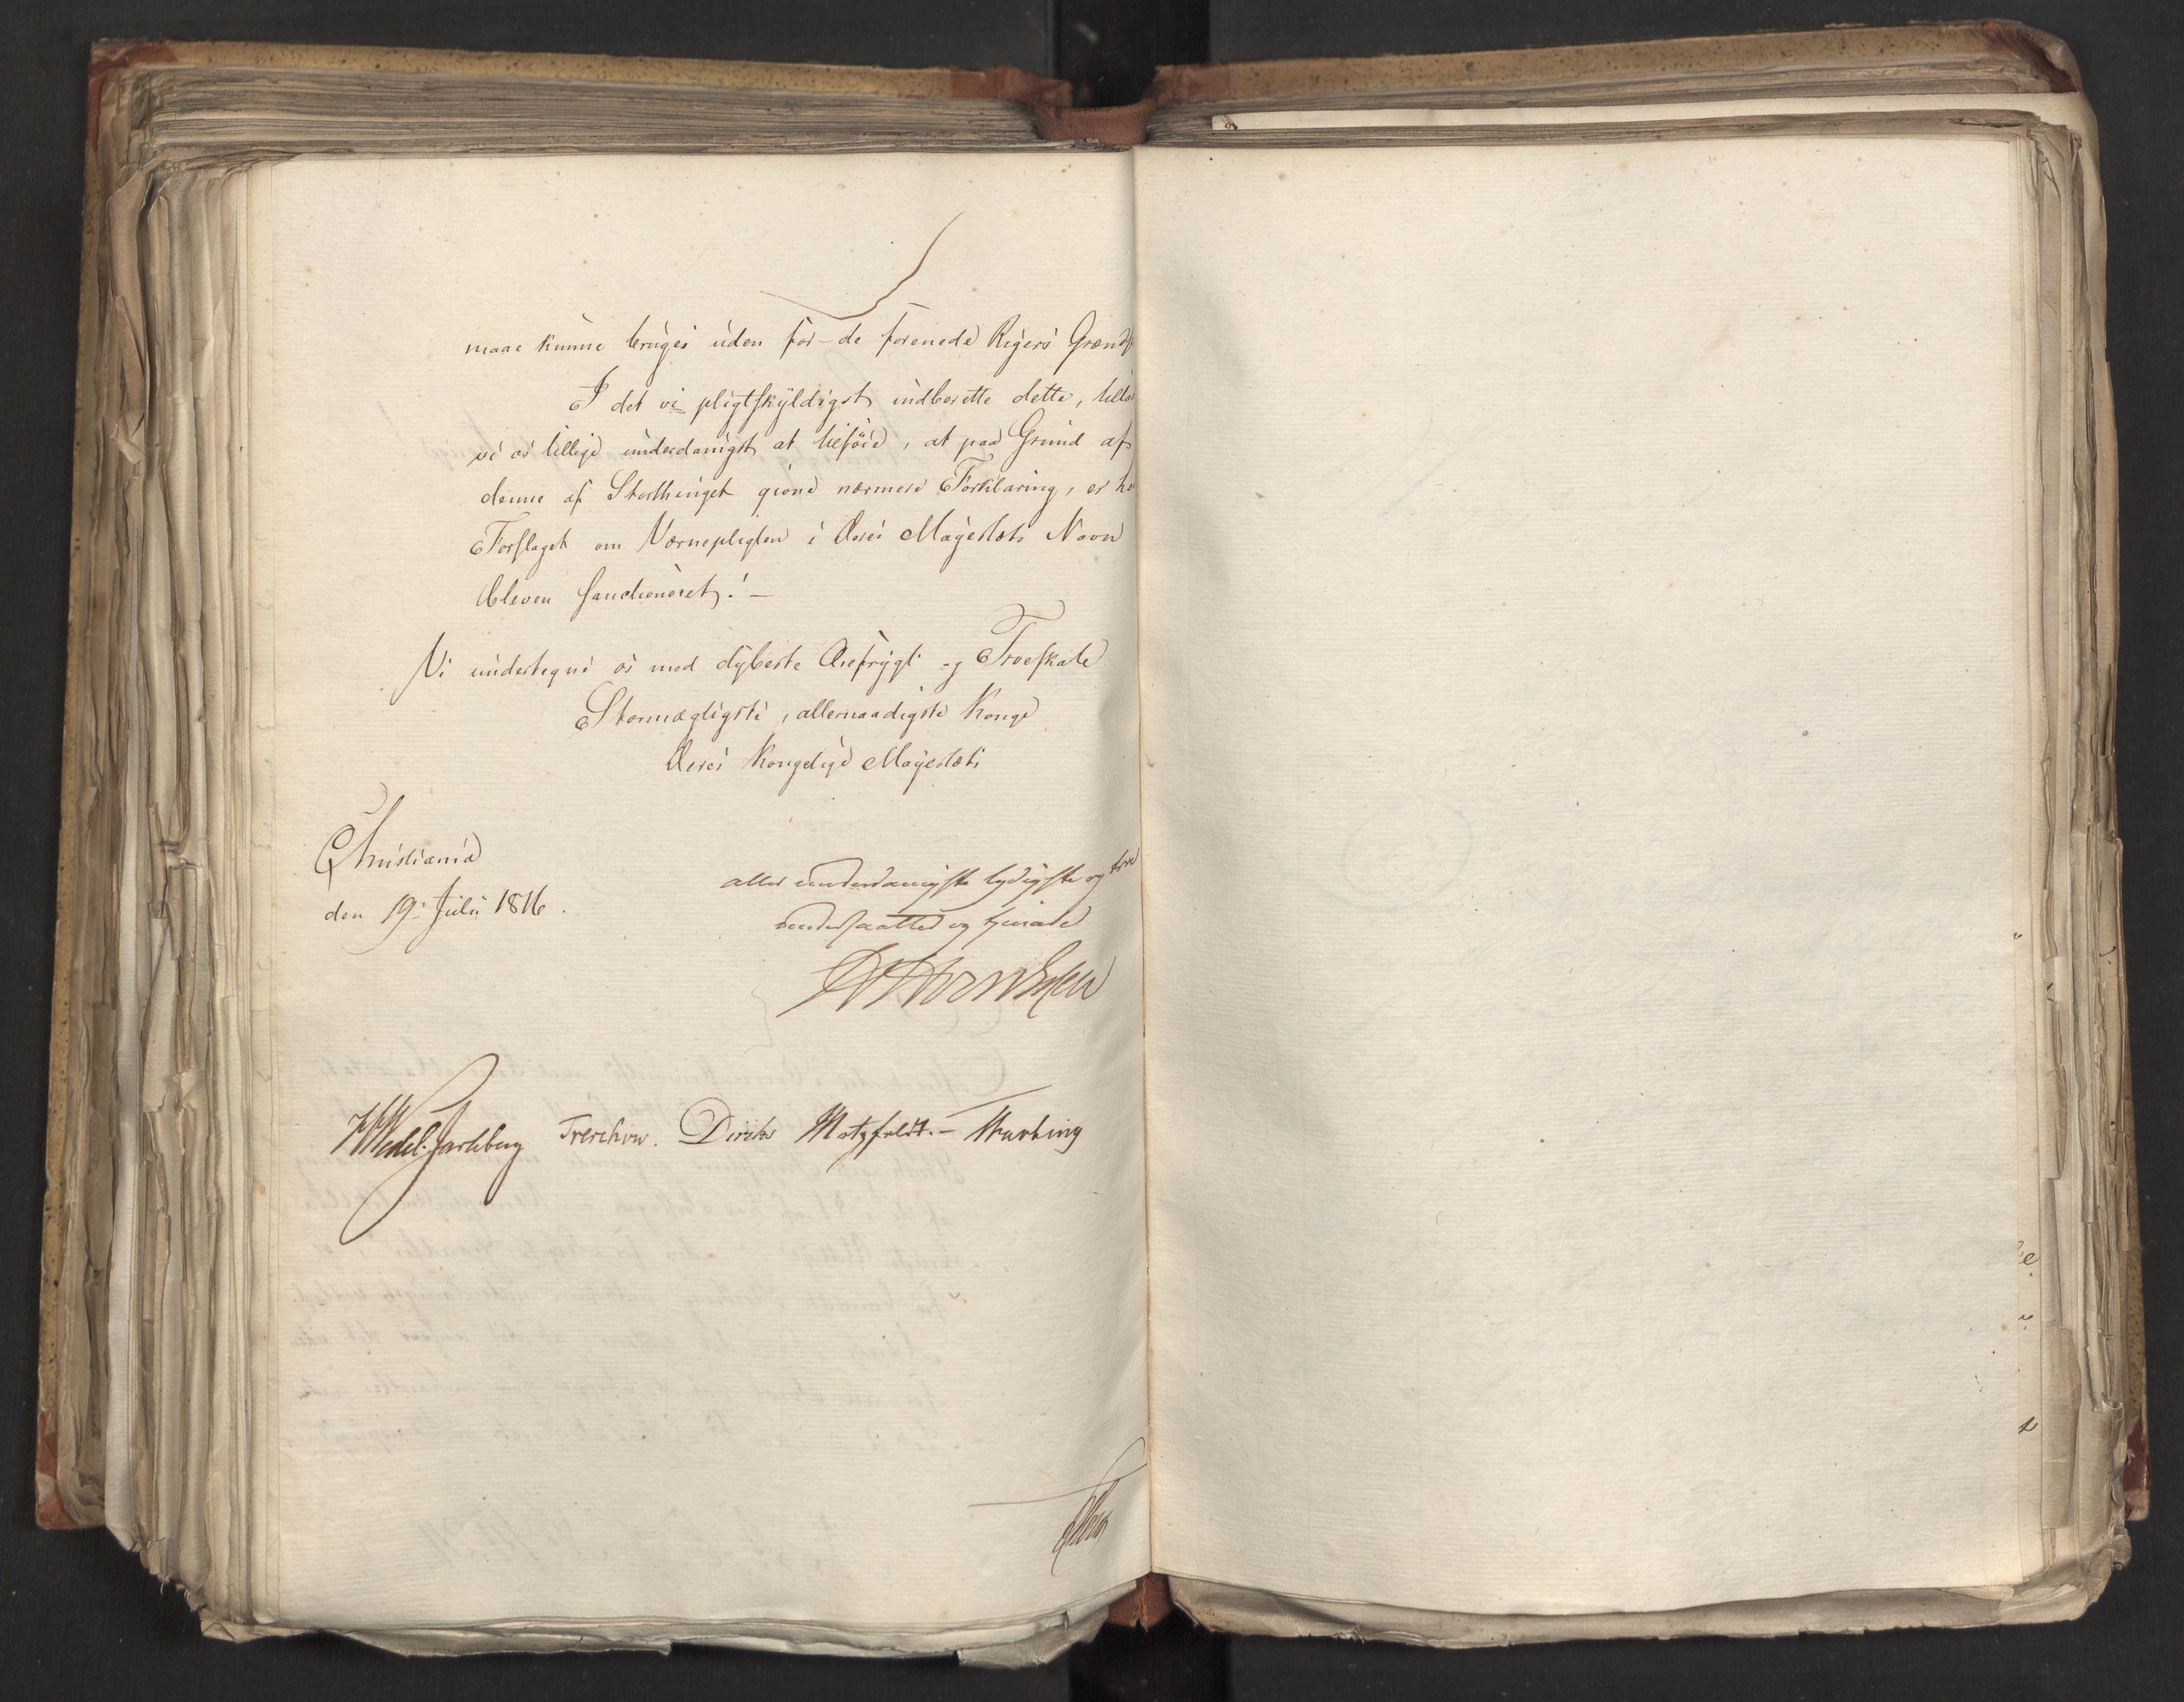 maae kunne bruges uden for de forenede Rigers Grænds
I det vi pligtskyldigst indberette dette, tillad
vi os tillige underdanigst at tilföie, at paa Grund af
denne af Storthinget givne nærmere Forklaring, er
Forslaget om Værnepligten i Deres Majestæts Navn
bleven sanctioneret. –
Vi undertegne os med dybeste Ærefrygt og Troeskab
Stormægtigste, allernaadigste Konge
Deres Kongelige Majestæts
Christiania
den 19. Julii 1816.
aller underdanigste lydigste og troe
undersaatter og tjenere
HWedel-Jarlsberg Treschow. Diriks Motzfeldt. – Krebting